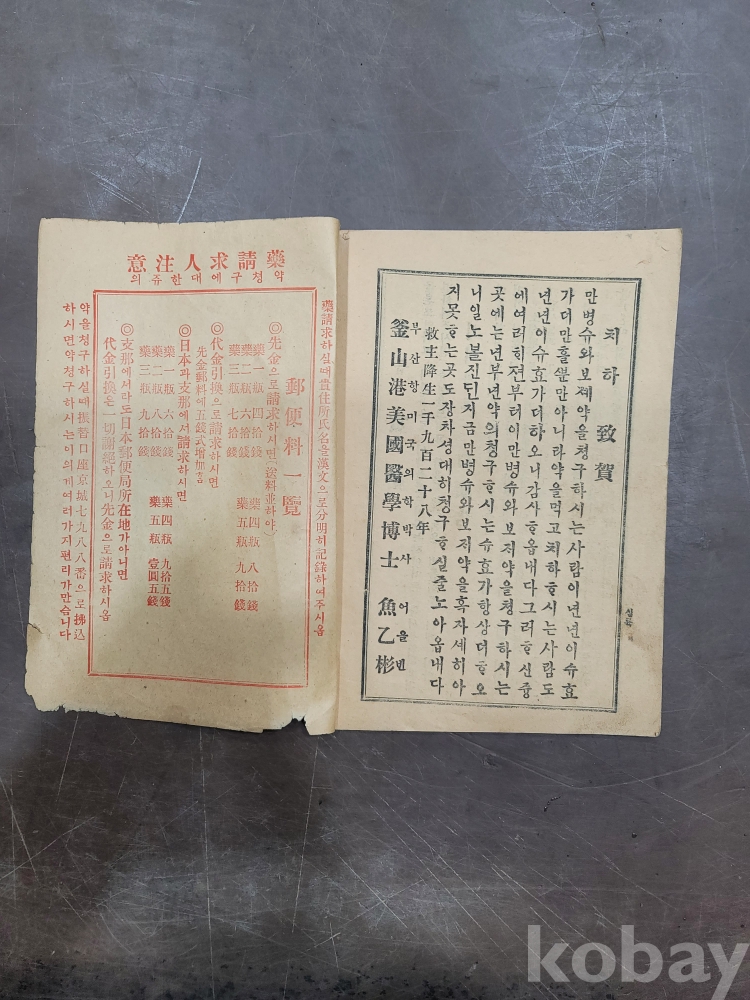 치하 致賀
만병슈와보졔약을쳥구하시는사람이년년이슈효
가더만흘뿐만아니라약을먹고치하ᄒᆞ시는사람도
년년이슈효가더하오니감사ᄒᆞ옵내다그러ᄒᆞ신즁
에여러히젼부터이만병슈와보저약을쳥구하시는
곳에는년부년약의쳥구ᄒᆞ시는슈효가항상더ᄒᆞ오
니일노볼진딘지금만병슈와보저약을혹자셰히아
지못ᄒᆞ는곳도장차셩대히쳥구ᄒᆞ실줄노아옵내다
救主降生一千九百二十八年
부산항미국의학박사 어을빈
釜山港美國醫學博士 魚乙彬
藥請求人注意
약쳥구에대한쥬의
藥請求하실때貴住所氏名을漢文으로分明히記錄하여주시옵
郵便料一覽
◎先金으로請求하시면(送料並하야)
藥一瓶 四拾錢 藥四瓶 八拾錢
藥二瓶 六拾錢 藥五瓶 九拾錢
藥三瓶 七拾錢
◎代金引換으로請求하시면
先金郵料에五錢式增加홈
◎日本과支那에서請求하시면
藥一瓶 六拾錢 藥四瓶 九拾五錢
藥二瓶 八拾錢 藥五瓶 壹圓五錢
藥三瓶 九拾錢
◎支那에서라도日本郵便局所在地가아니면
代金引換은一切謝絕하오니先金으로請求하시옵
약을쳥구하실때振替口座京城七九八八番으로拂込
하시면약쳥구하시는이의게여러가지편리가만습니다
kobay